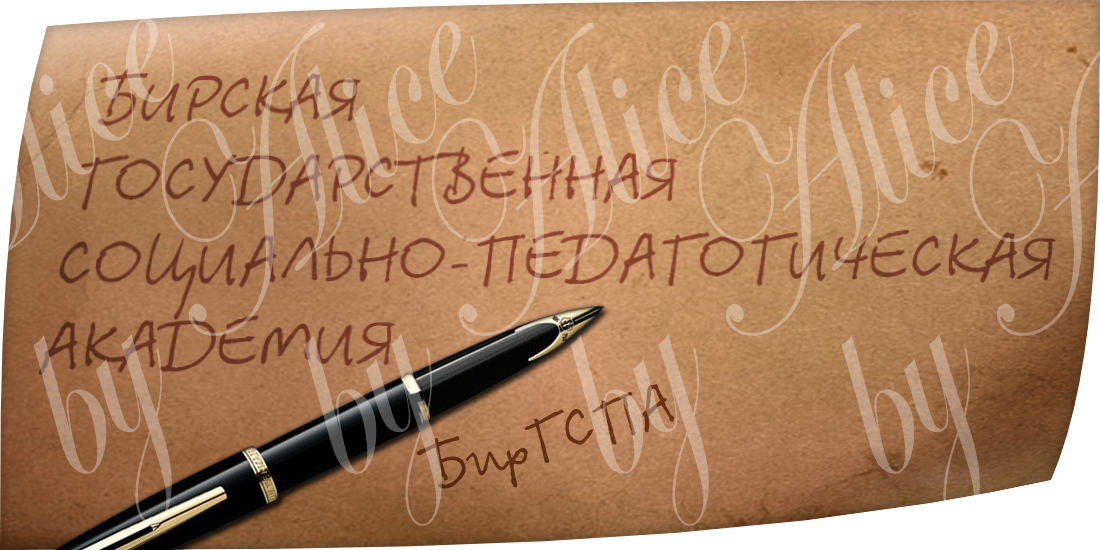 БИРСКАЯ
ГОСУДАРСТВЕННАЯ
СОЦИАЛЬНО-ПЕДАГОГИЧЕСКАЯ
АКАДЕМИЯ
БирГСПА
by Alice
by Alice
by Alice
by Alice